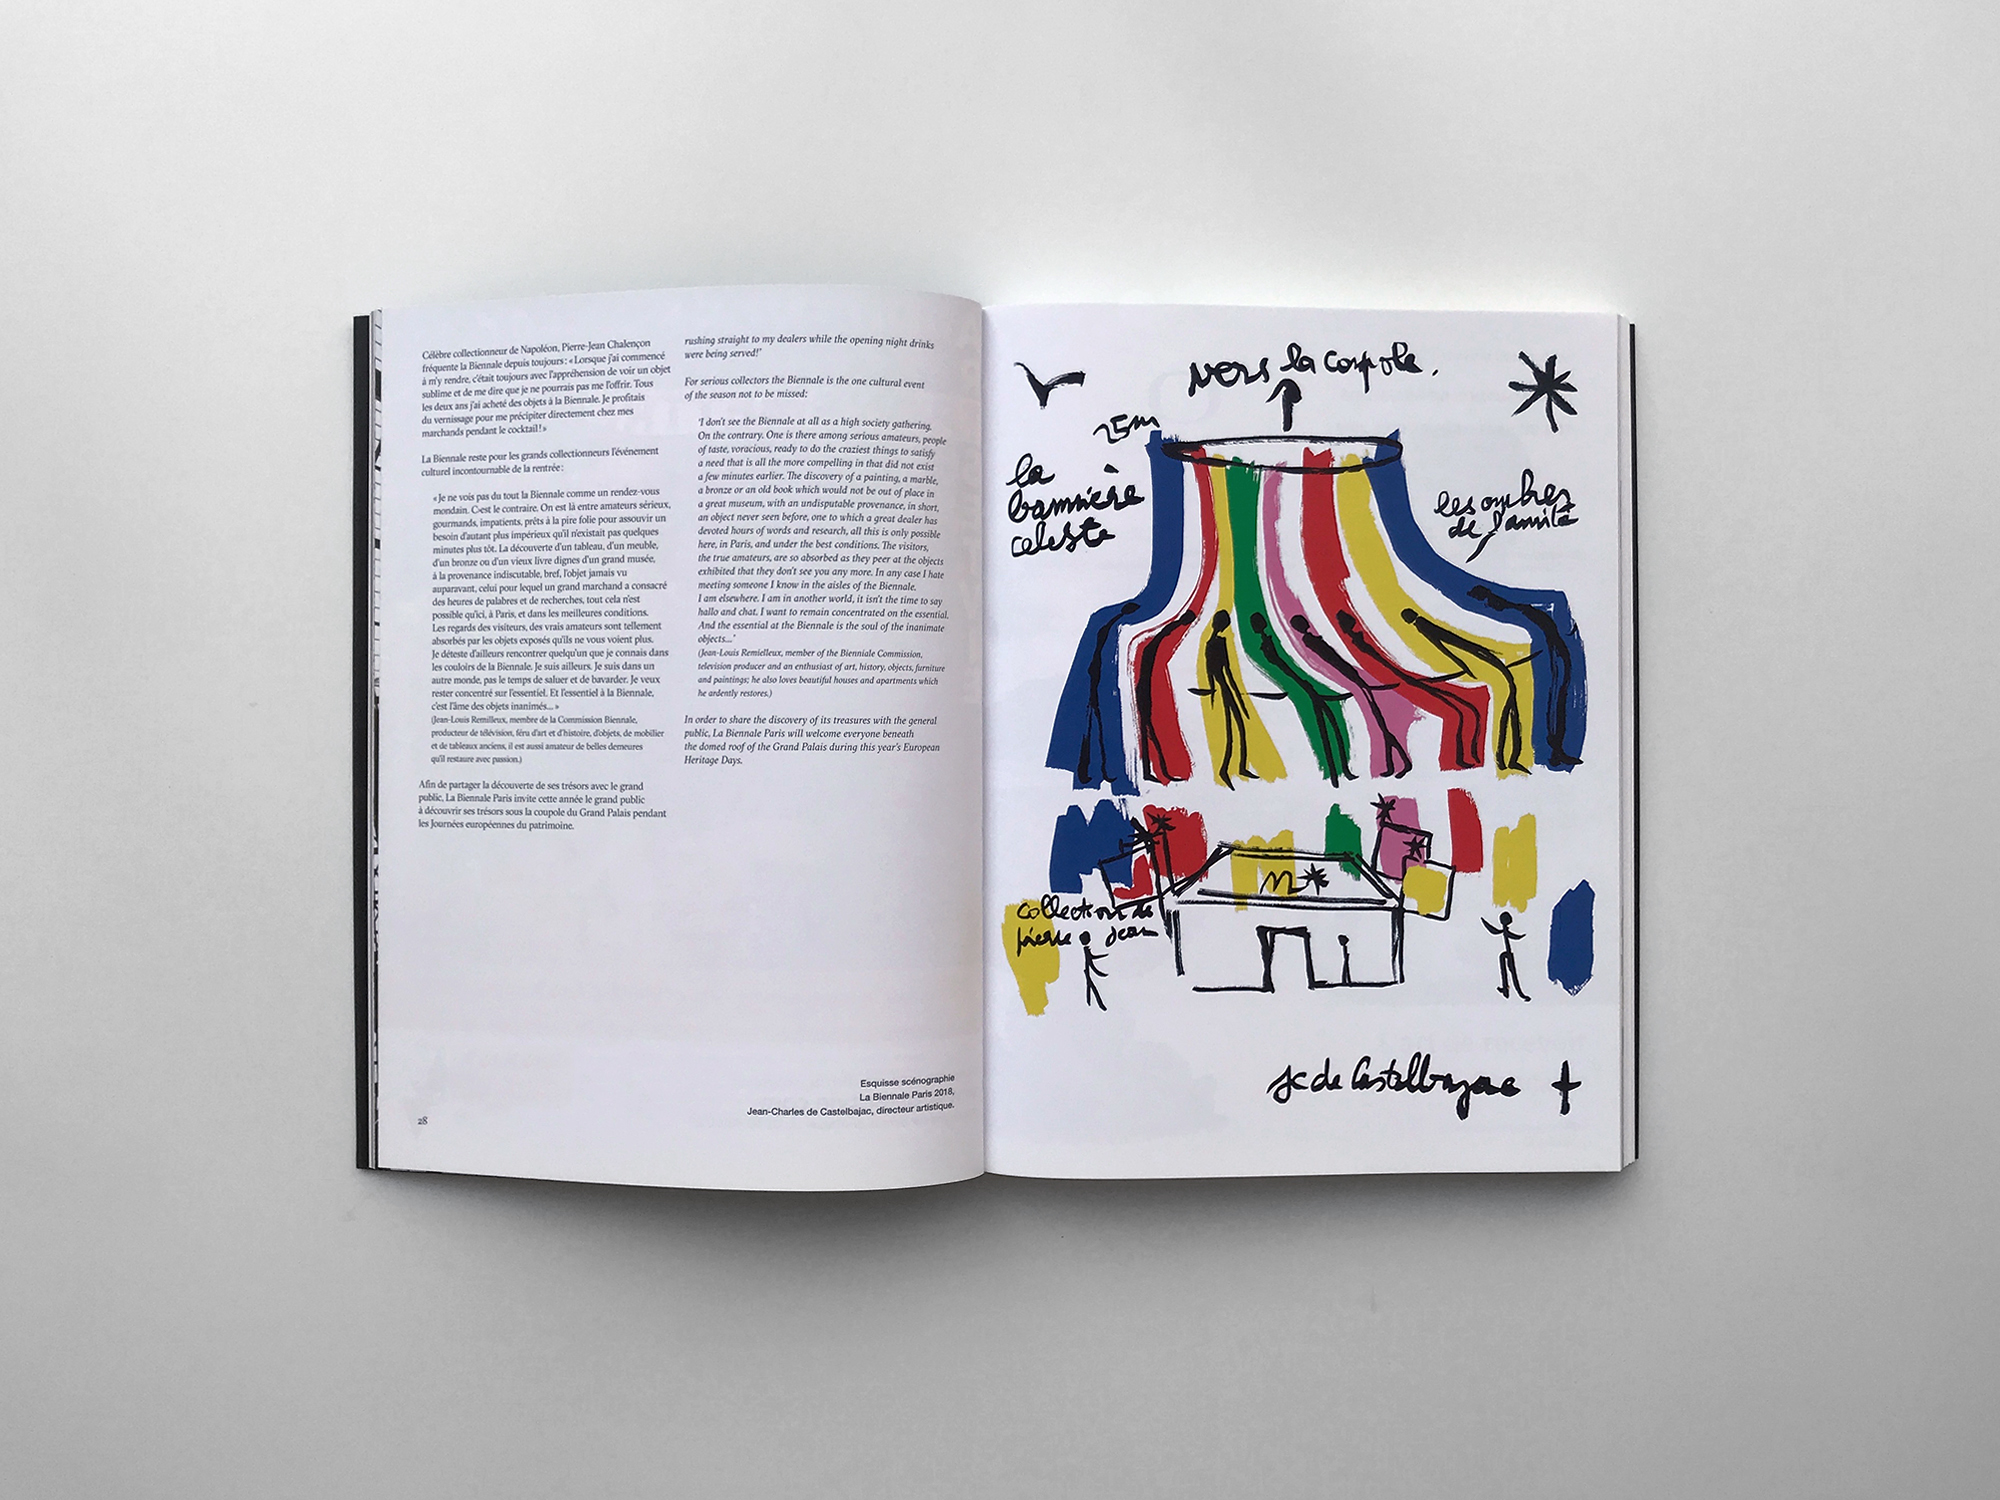 Célèbre collectionneur de Napoléon, Pierre-Jean Chalençon
fréquente la Biennale depuis toujours : « Lorsque j'ai commencé
à m'y rendre, c'était toujours avec l'appréhension de voir un objet
sublime et de me dire que je ne pourrais pas me l'offrir. Tous
les deux ans j'ai acheté des objets à la Biennale. Je profitais
du vernissage pour me précipiter directement chez mes
marchands pendant le cocktail ! »
La Biennale reste pour les grands collectionneurs l'événement
culturel incontournable de la rentrée :
« Je ne vois pas du tout la Biennale comme un rendez-vous
mondain. C'est le contraire. On est là entre amateurs sérieux,
gourmands, impatients, prêts à la pire folie pour assouvir un
besoin d'autant plus impérieux qu'il n'existait pas quelques
minutes plus tôt. La découverte d'un tableau, d'un meuble,
d'un bronze ou d'un vieux livre dignes d'un grand musée,
à la provenance indiscutable, bref, l'objet jamais vu
auparavant, celui pour lequel un grand marchand a consacré
des heures de palabres et de recherches, tout cela n'est
possible qu'ici, à Paris, et dans les meilleures conditions.
Les regards des visiteurs, des vrais amateurs sont tellement
absorbés par les objets exposés qu'ils ne vous voient plus.
Je déteste d'ailleurs rencontrer quelqu'un que je connais dans
les couloirs de la Biennale. Je suis ailleurs. Je suis dans un
autre monde, pas le temps de saluer et de bavarder. Je veux
rester concentré sur l'essentiel. Et l'essentiel à la Biennale,
c'est l'âme des objets inanimés... »
(Jean-Louis Remilleux, membre de la Commission Biennale,
producteur de télévision, féru d'art et d'histoire, d'objets, de mobilier
et de tableaux anciens, il est aussi amateur de belles demeures
qu'il restaure avec passion.)
Afin de partager la découverte de ses trésors avec le grand
public, La Biennale Paris invite cette année le grand public
à découvrir ses trésors sous la coupole du Grand Palais pendant
les Journées européennes du patrimoine.
28
rushing straight to my dealers while the opening night drinks
were being served!'
For serious collectors the Biennale is the one cultural event
of the season not to be missed:
'I don't see the Biennale at all as a high society gathering.
On the contrary. One is there among serious amateurs, people
of taste, voracious, ready to do the craziest things to satisfy
a need that is all the more compelling in that did not exist
a few minutes earlier. The discovery of a painting, a marble,
a bronze or an old book which would not be out of place in
a great museum, with an undisputable provenance, in short,
an object never seen before, one to which a great dealer has
devoted hours of words and research, all this is only possible
here, in Paris, and under the best conditions. The visitors,
the true amateurs, are so absorbed as they peer at the objects
exhibited that they don't see you any more. In any case I hate
meeting someone I know in the aisles of the Biennale.
I am elsewhere. I am in another world, it isn't the time to say
hallo and chat. I want to remain concentrated on the essential.
And the essential at the Biennale is the soul of the inanimate
objects...'
(Jean-Louis Remielleux, member of the Bienniale Commission,
television producer and an enthusiast of art, history, objects, furniture
and paintings; he also loves beautiful houses and apartments which
he ardently restores.)
In order to share the discovery of its treasures with the general
public, La Biennale Paris will welcome everyone beneath
the domed roof of the Grand Palais during this year's European
Heritage Days.
Esquisse scénographie
La Biennale Paris 2018,
Jean-Charles de Castelbajac, directeur artistique.
vers la coupole.
25m
la
bannière
celeste
les ombres
de l'amitié
N
collection de
pierre Jean
JC de Castelbajac